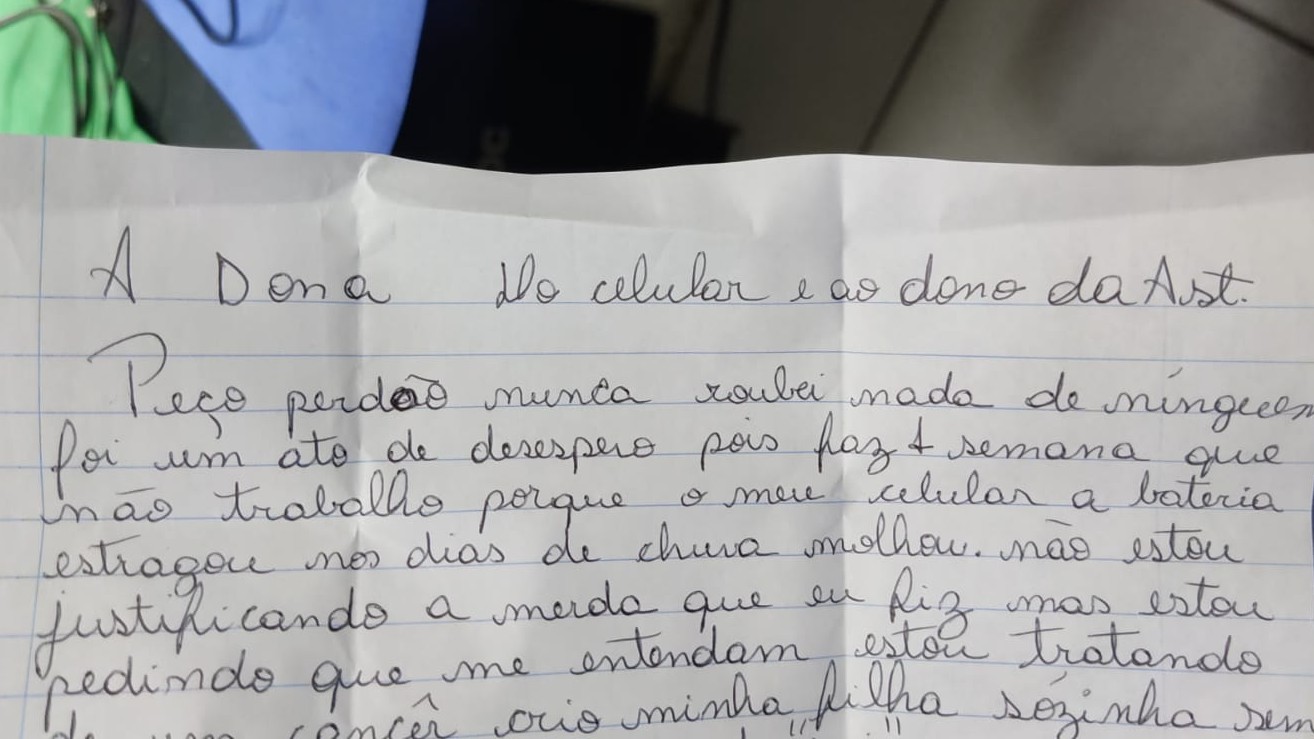 A Dona do celular e ao dono da Ast.
Peço perdão nunca roubei nada de ninguem
foi um ato de desespero pois faz 1 semana que
não trabalho porque o meu celular a bateria
estragou nos dias de chuva molhou. não estou
justificando a merda que eu fiz mas estou
pedindo que me entendam estou tratando
de um cancêr crio minha filha sózinha sem